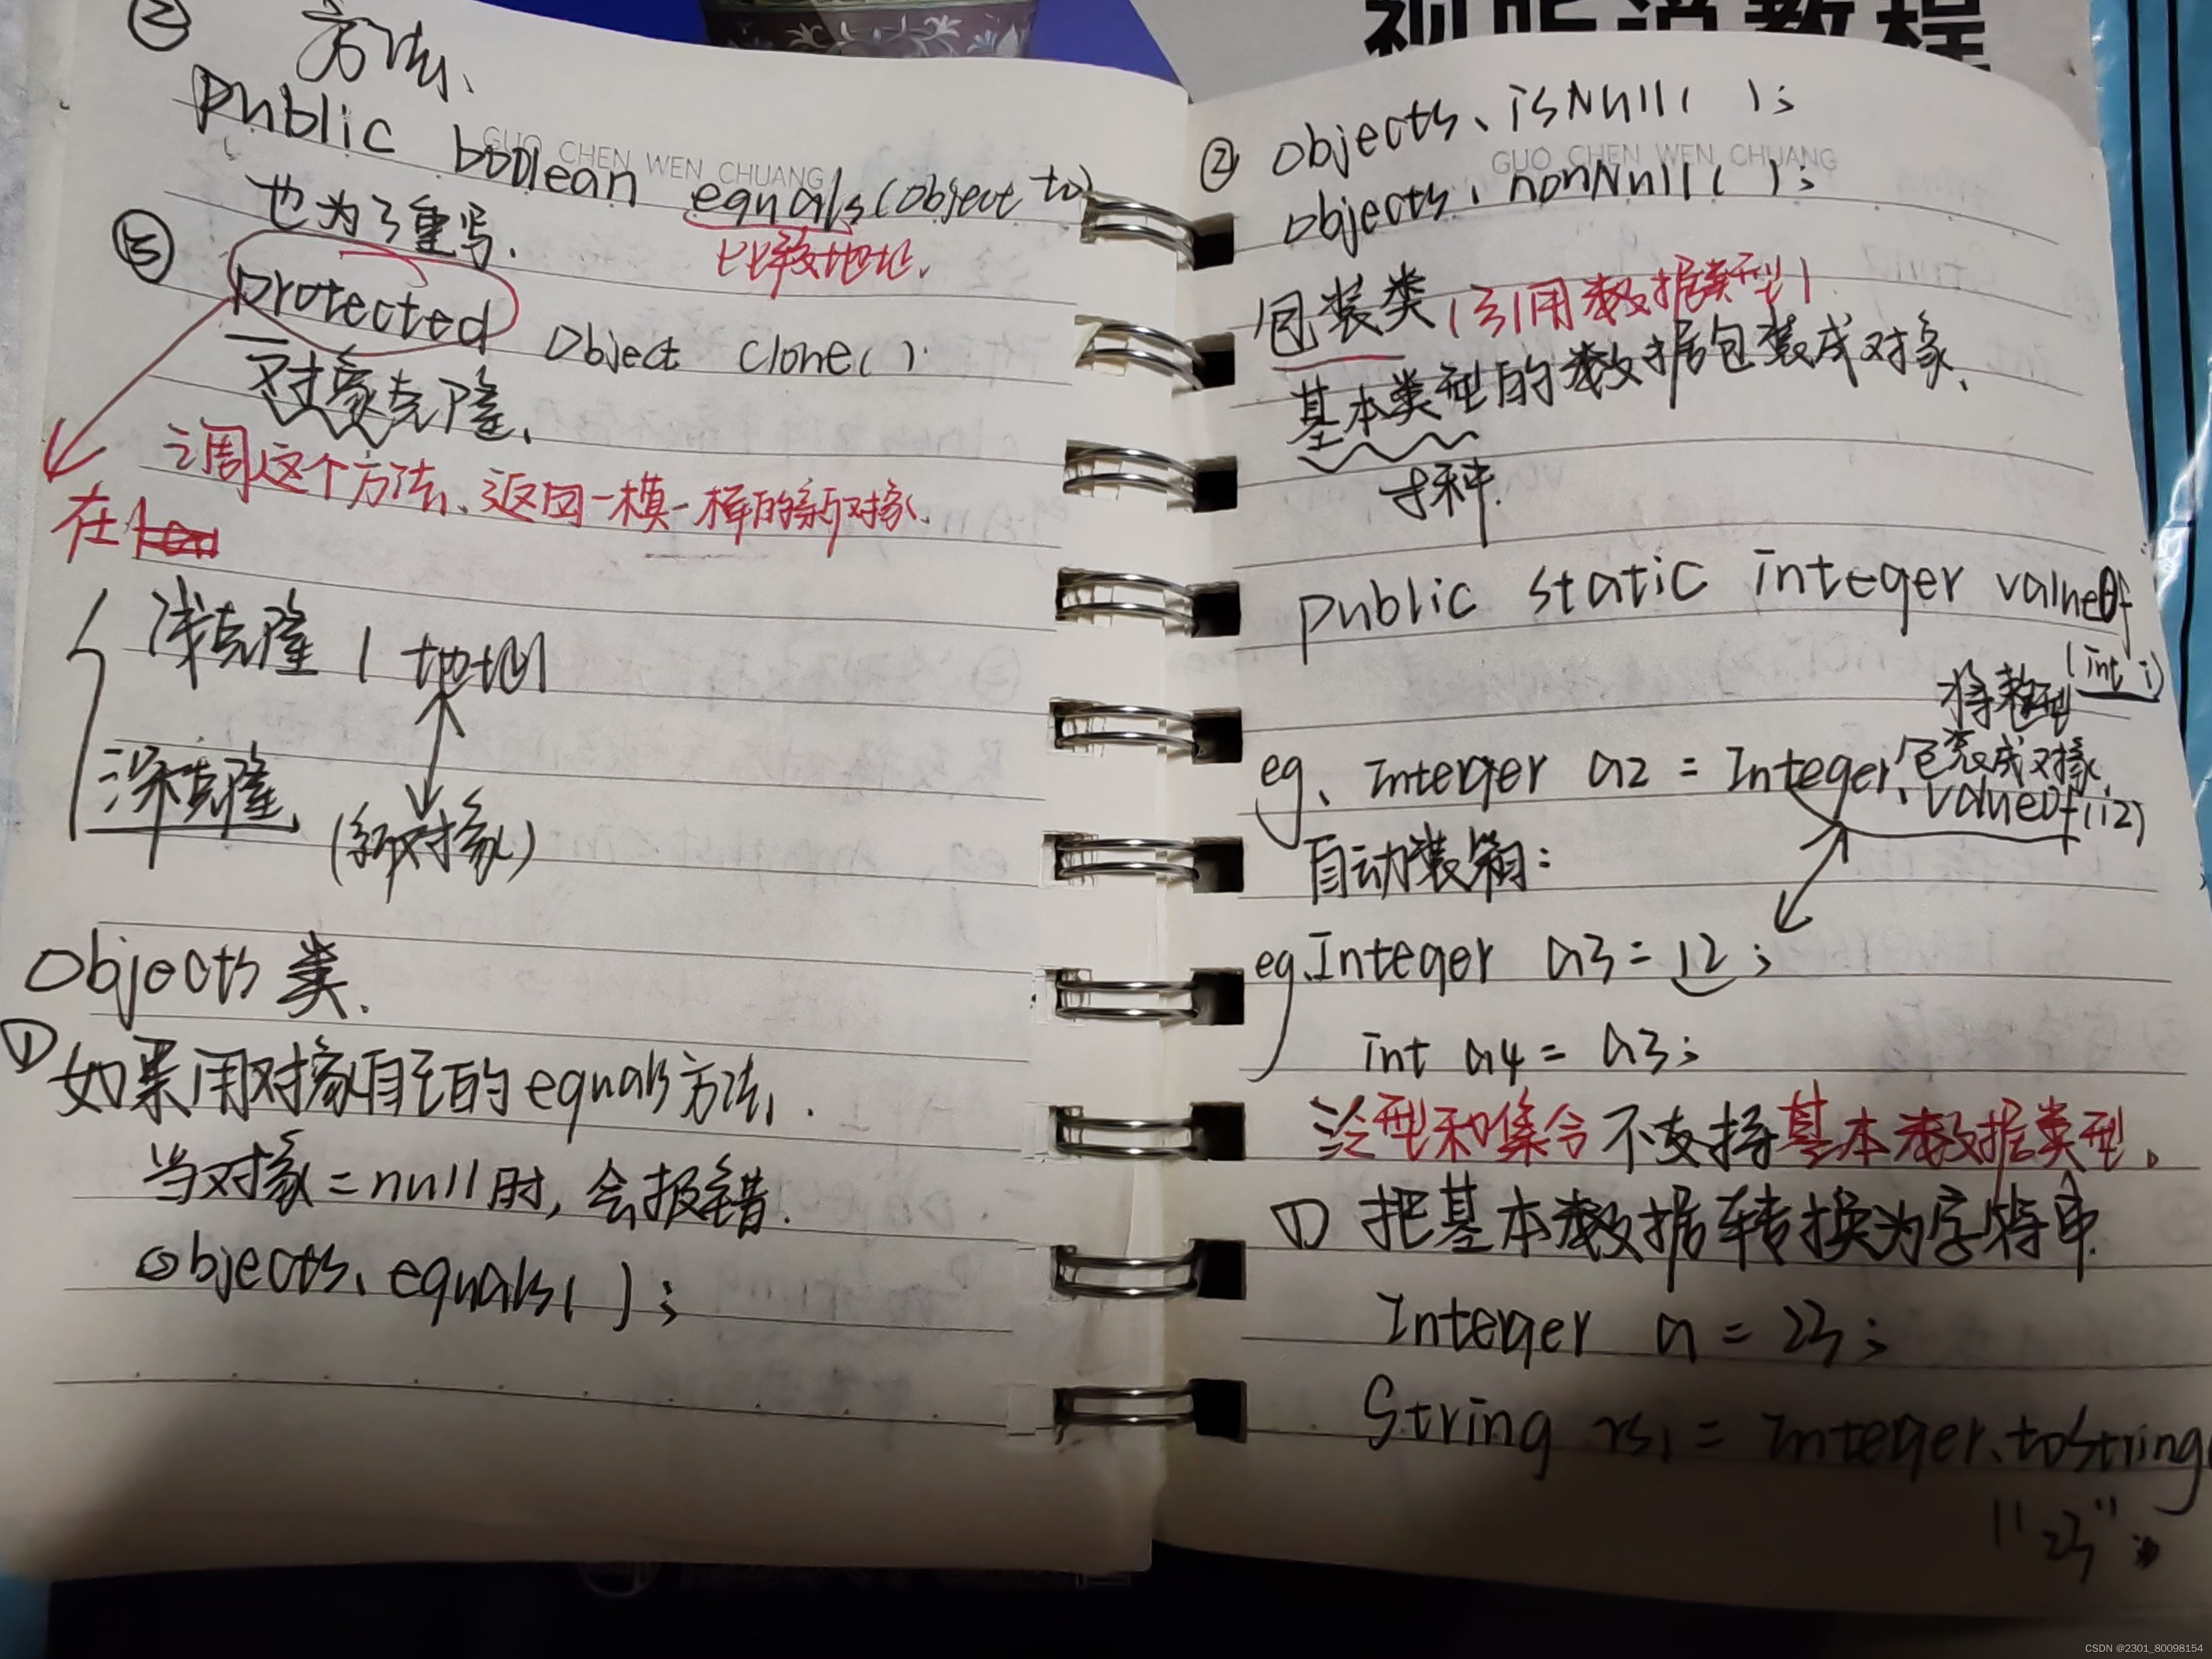 视听说教程
② 方法、
public boolean equals(Object to)
GUO CHEN WEN CHUANG
也为了重写.
比较地址.
③ protected Object clone()
对象克隆.
调这个方法、返回一模一样的新对象.
在
浅克隆 (地址)
深克隆
(新对象)
Objects 类.
① 如果用对象自己的equals方法.
当对象=null时,会报错.
Objects.equals( );
② Objects.isNull( );
GUO CHEN WEN CHUANG
Objects.nonNull( );
包装类(引用数据类型)
基本类型的数据包装成对象.
8种.
public static integer valueOf
(int i)
将整型
包装成对象.
eg、Integer a2 = Integer.valueOf(12)
自动装箱:
eg.Integer a3 = 12;
int a4 = a3;
泛型和集合不支持基本数据类型。
① 把基本数据转换为字符串.
Integer a = 23;
String rs1 = Integer.toString(
"23";
CSDN @2301_80098154